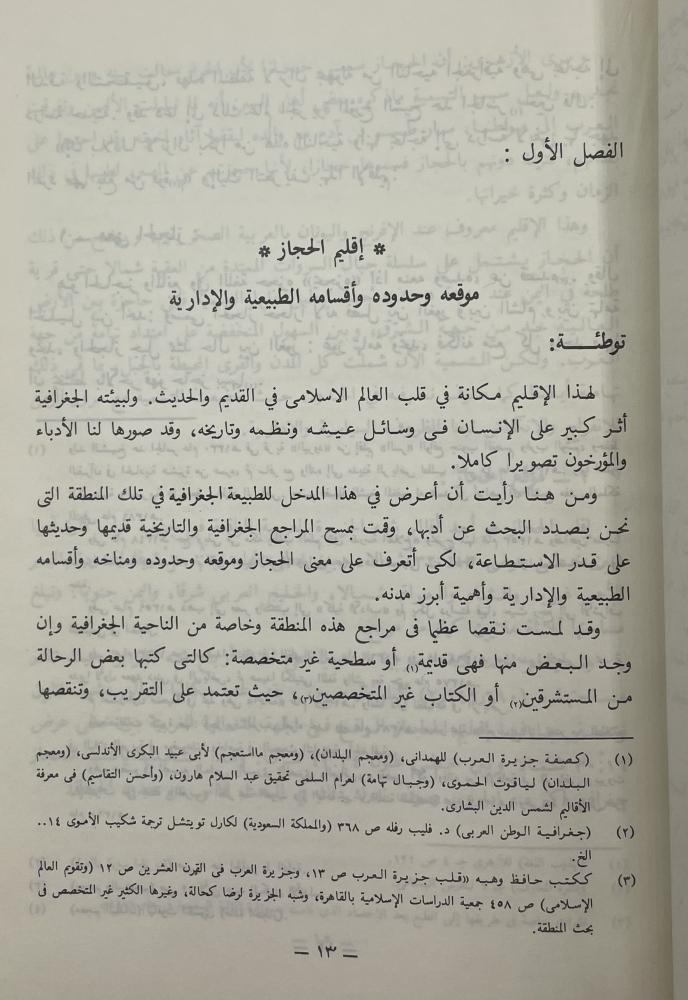 الفصل الأول :
* إقليم الحجاز *
موقعه وحدوده وأقسامه الطبيعية والإدارية
توطئـــــة:
لهذا الإقليم مكانة في قلب العالم الاسلامى في القديم والحديث. ولبيئته الجغرافية
أثر كبير على الإنسان فى وسائل عيشه ونظمه وتاريخه، وقد صورها لنا الأدباء
والمؤرخون تصويرا كاملا.
ومن هنا رأيت أن أعرض في هذا المدخل للطبيعة الجغرافية في تلك المنطقة التى
نحن بصدد البحث عن أدبها، وقمت بمسح المراجع الجغرافية والتاريخية قديمها وحديثها
على قدر الاستطاعة، لكى أتعرف على معنى الحجاز وموقعه وحدوده ومناخه وأقسامه
الطبيعية والإدارية وأهمية أبرز مدنه.
وقد لمست نقصا عظيما في مراجع هذه المنطقة وخاصة من الناحية الجغرافية وإن
وجد البعض منها فهى قديمة(١) أو سطحية غير متخصصة: كالتى كتبها بعض الرحالة
من المستشرقين(٢) أو الكتاب غير المتخصصين(٣)، حيث تعتمد على التقريب، وتنقصها
(١) (كصفة جزيرة العرب) للهمدانى، (ومعجم البلدان)، (ومعجم مااستعجم) لأبى عبيد البكرى الأندلسى، (ومعجم
البلدان) لياقوت الحموى، (وجبال تهامة) لعرام السلمى تحقيق عبد السلام هارون، (وأحسن التقاسيم) فى معرفة
الأقاليم لشمس الدين البشارى.
(٢) (جغرافية الوطن العربى) د. فليب رفله ص ٣٦٨ (والمملكة السعودية) لكارل تويتشل ترجمة شكيب الأموى ١٤..
الخ.
(٣) ككتب حافظ وهبه «قلب جزيرة العرب ص ١٣، وجزيرة العرب فى القرن العشرين ص ١٢ (وتقويم العالم
الإسلامى) ص ٤٥٨ جمعية الدراسات الإسلامية بالقاهرة، وشبه الجزيرة لرضا كحالة، وغيرها الكثير غير المتخصص فى
بحث المنطقة.
– ١٣ –